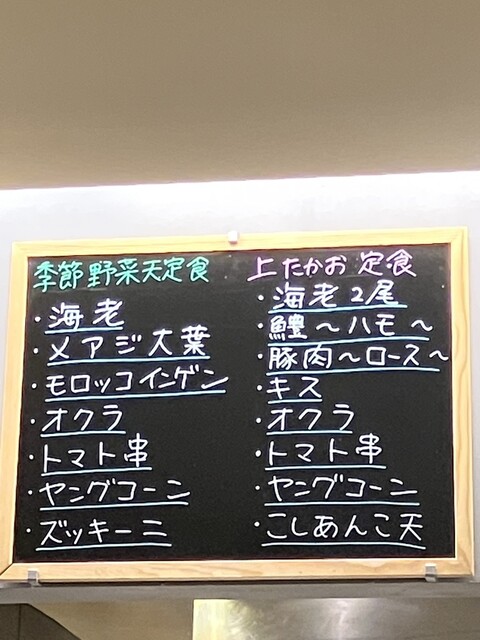 季節野菜天定食
・海老
・メアジ大葉
・モロッコインゲン
・オクラ
・トマト串
・ヤングコーン
・ズッキーニ
上たかお定食
・海老2尾
・鱧～ハモ～
・豚肉～ロース～
・キス
・オクラ
・トマト串
・ヤングコーン
・こしあんこ天